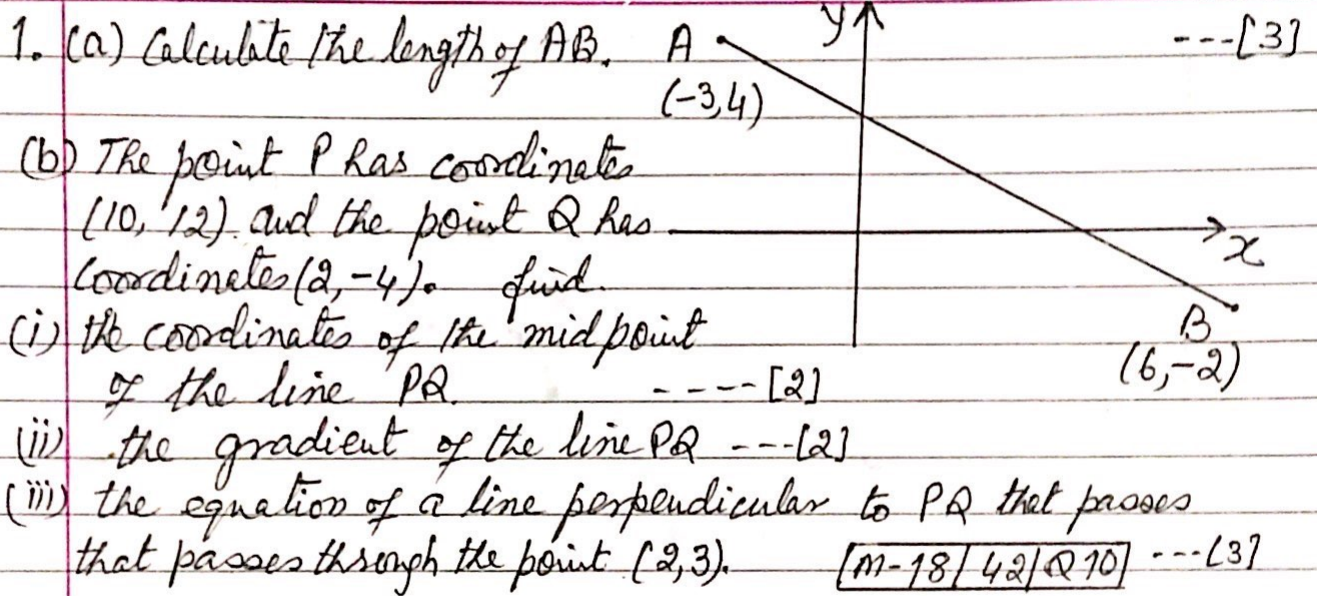 1. (a) Calculate the length of AB. A y ---[3]
(-3,4)
(b) The point P has coordinates
(10, 12). and the point Q has
x
coordinates (2, -4). find.
(i) the coordinates of the midpoint B
of the line PQ. ----[2] (6,-2)
(ii) the gradient of the line PQ ---[2]
(iii) the equation of a line perpendicular to PQ that passes
that passes through the point (2,3). [M-18/42/Q10] ---[3]